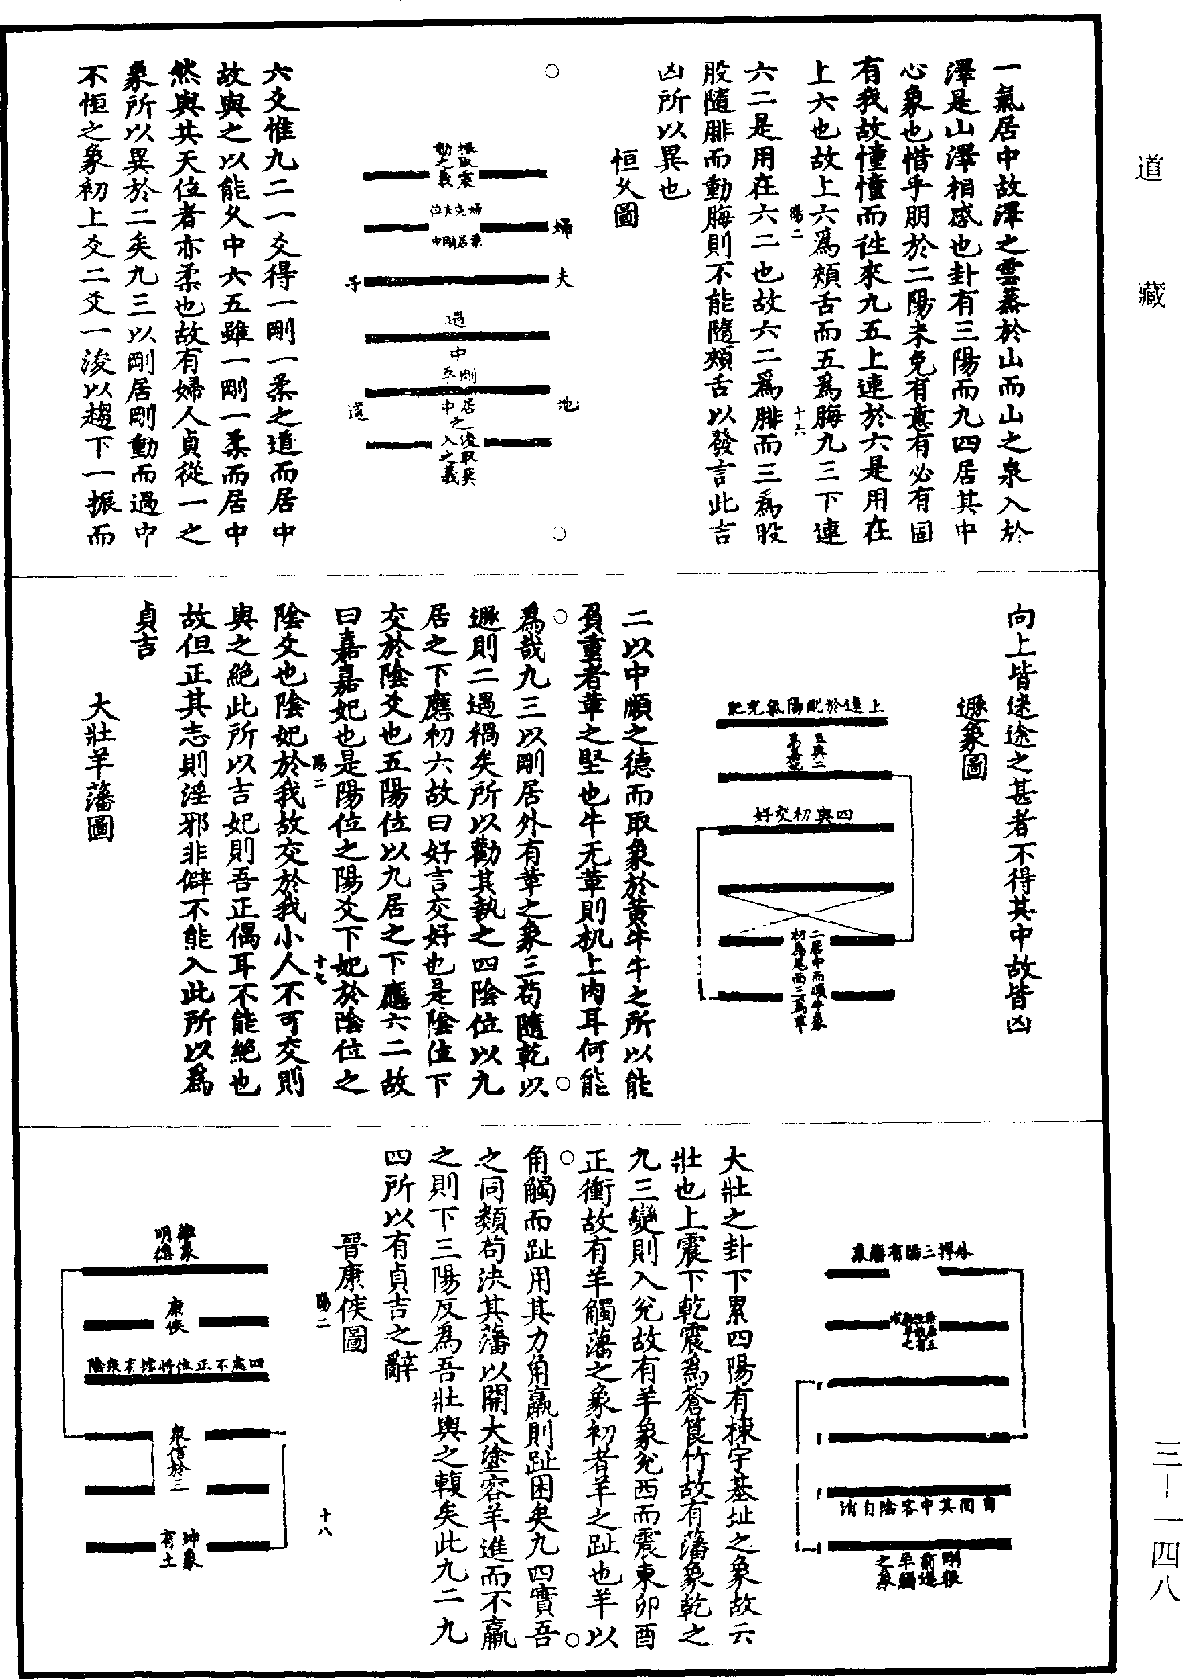 道藏
三—一四八
一氣居中故澤之雲蒸於山而山之泉入於
澤是山澤相感也卦有三陽而九四居其中
心象也惜乎朋於二陽未免有意有必有固
有我故憧憧而徃來九五上連於六是用在
上六也故上六爲頰舌而五爲脢九三下連
陽二
十六
六二是用在六二也故六二爲腓而三爲股
股隨腓而動脢則不能隨頰舌以發言此吉
凶所以異也
恒久圖
振取震
動之義
婦
婦克夫位
柔居剛中
夫
子
過
中
剛居
中之
浚取巽
入之義
六爻惟九二一爻得一剛一柔之道而居中
故與之以能久中六五雖一剛一柔而居中
然與其天位者亦柔也故有婦人貞從一之
象所以異於二矣九三以剛居剛動而過中
不恒之象初上爻二爻一浚以趨下一振而
向上皆迷途之甚者不得其中故皆凶
遯象圖
上連於肥陽氣充肥
五與二
四與初交好
二居中而順牛象
初爲尾而三爲革
二以中順之德而取象於黃牛牛之所以能
負重者革之堅也牛无革則机上肉耳何能
爲哉九三以剛居外有革之象三苟隨乾以
遯則二遇禍矣所以勸其執之四陰位以九
居之下應初六故曰好言交好也是陰位下
交於陰爻也五陽位以九居之下應六二故
曰嘉嘉妃也是陽位之陽爻下妃於陰位之
陽二
十七
陰爻也陰妃於我故交於我小人不可交則
與之絶此所以吉妃則吾正偶耳不能絶也
故但正其志則淫邪非僻不能入此所以爲
貞吉
大壯羊藩圖
外捍三陽有藩象
自間其中容陰自消
剛狠
前進
羊觸
之象
大壯之卦下累四陽有棟宇基址之象故云
壯也上震下乾震爲蒼筤竹故有藩象乾之
九三變則入兊故有羊象兊西而震東卯酉
正衝故有羊觸藩之象初者羊之趾也羊以
角觸而趾用其力角羸則趾困矣九四實吾
之同類苟決其藩以開大塗容羊進而不羸
之則下三陽反爲吾壯輿之輹矣此九二九
四所以有貞吉之辭
陽二
十八
晉康侯圖
離象
明德
康侯
四處不正位忤據衆陰
衆信於三
坤象
有土